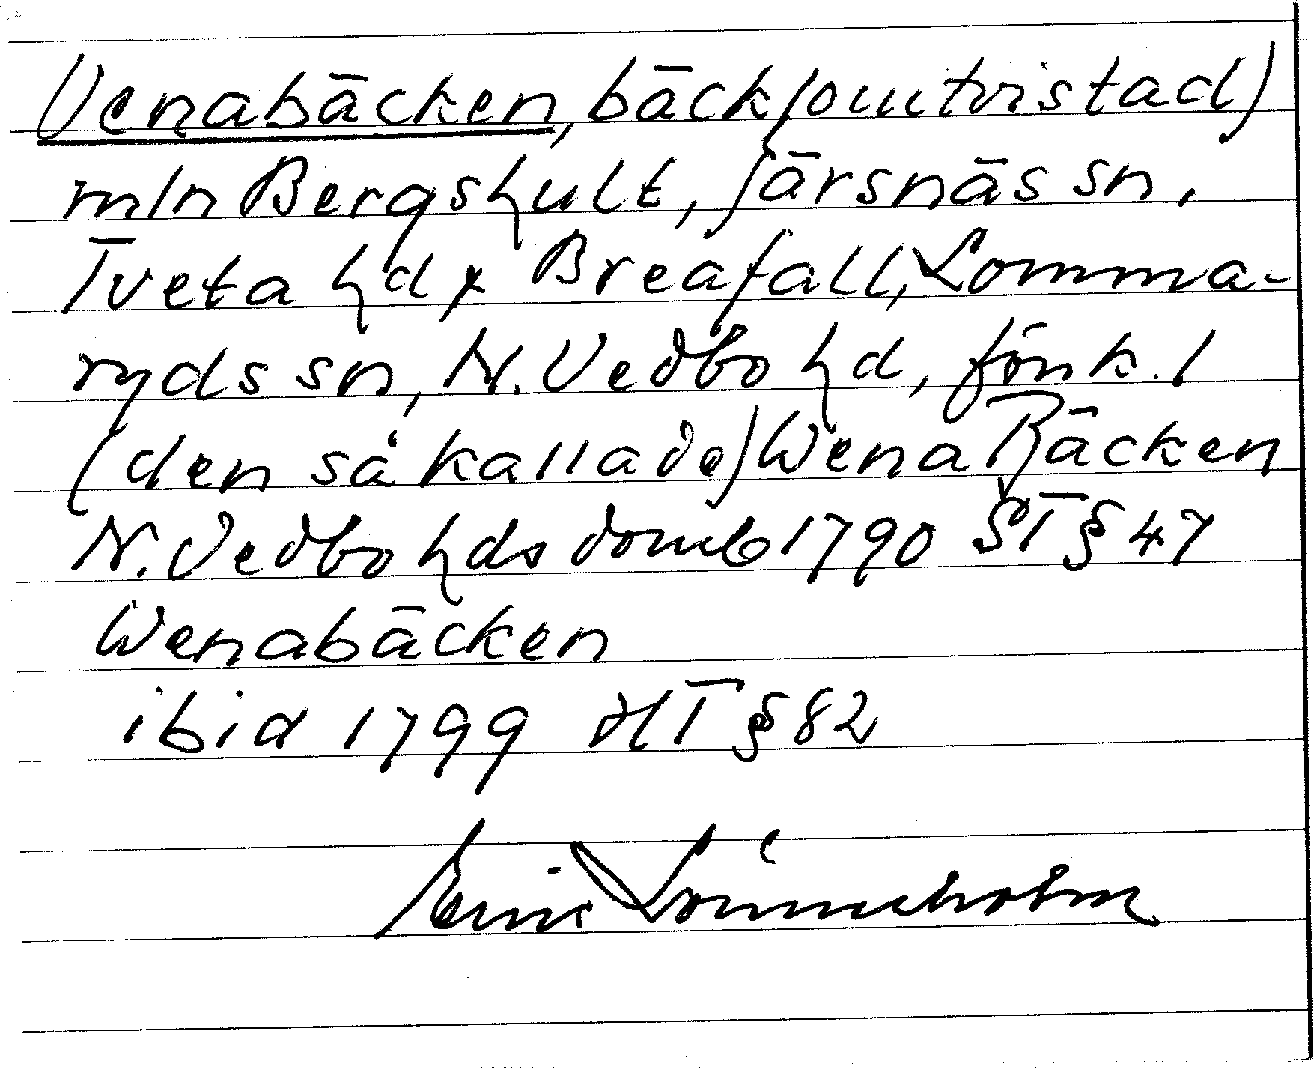 Venabäcken, bäck (omtvistad)
mln Bergshult, Järsnäs sn,
Tveta hd x Breafall, Lomma-
ryds sn, N. Vedbo hd, Jönk. l
(den så kallade) Wena Bäcken
N. Vedbo hds domb 1790 ST § 47
Wenabäcken
ibid 1799 HT § 82
Lönneholm